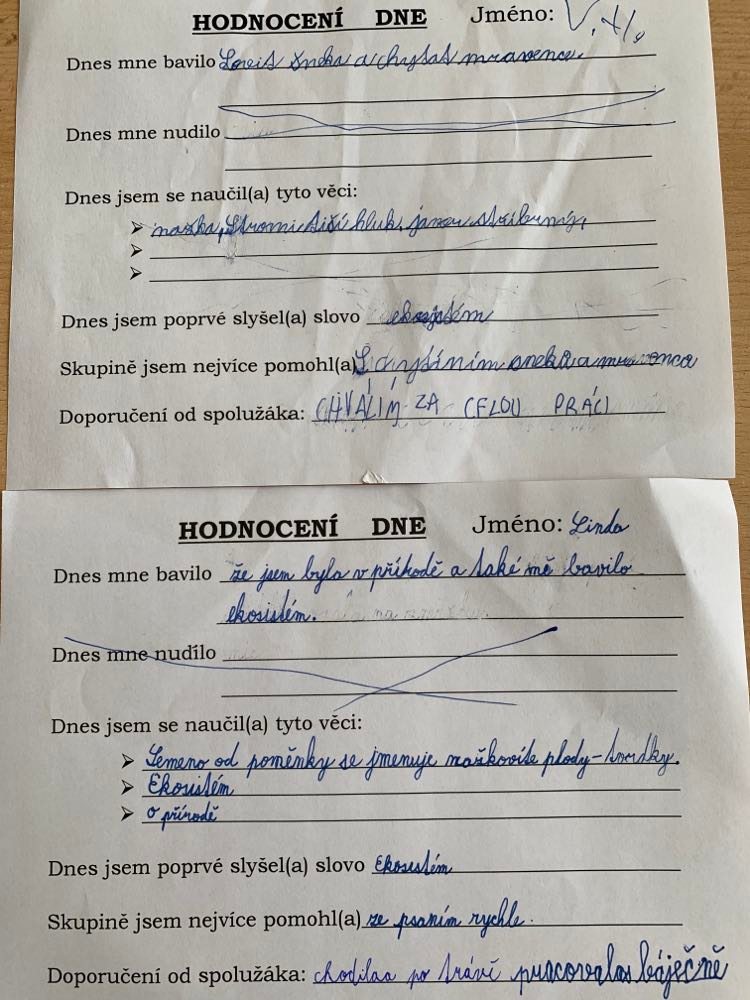 HODNOCENÍ DNE Jméno: V. H.
Dnes mne bavilo Loveit šneka a chytat mravence.
Dnes mne nudilo
Dnes jsem se naučil(a) tyto věci:
➢ Stromi tiší hluk,
➢
➢
Dnes jsem poprvé slyšel(a) slovo ekosistém
Skupině jsem nejvíce pomohl(a) šneka a mravence
Doporučení od spolužáka: CHVÁLÍM ZA CELOU PRÁCI
HODNOCENÍ DNE Jméno: Linda
Dnes mne bavilo že jsem byla v příkodě a také mě bavilo
ekosistém.
Dnes mne nudilo
Dnes jsem se naučil(a) tyto věci:
➢ Semeno od poměnky se jmenuje mažkovite plody-tvrdky.
➢ Ekosistém
➢ o přírodě
Dnes jsem poprvé slyšel(a) slovo Ekosistém
Skupině jsem nejvíce pomohl(a) ze psaním rychle.
Doporučení od spolužáka: chodilaa po trávě pracovalas báječně